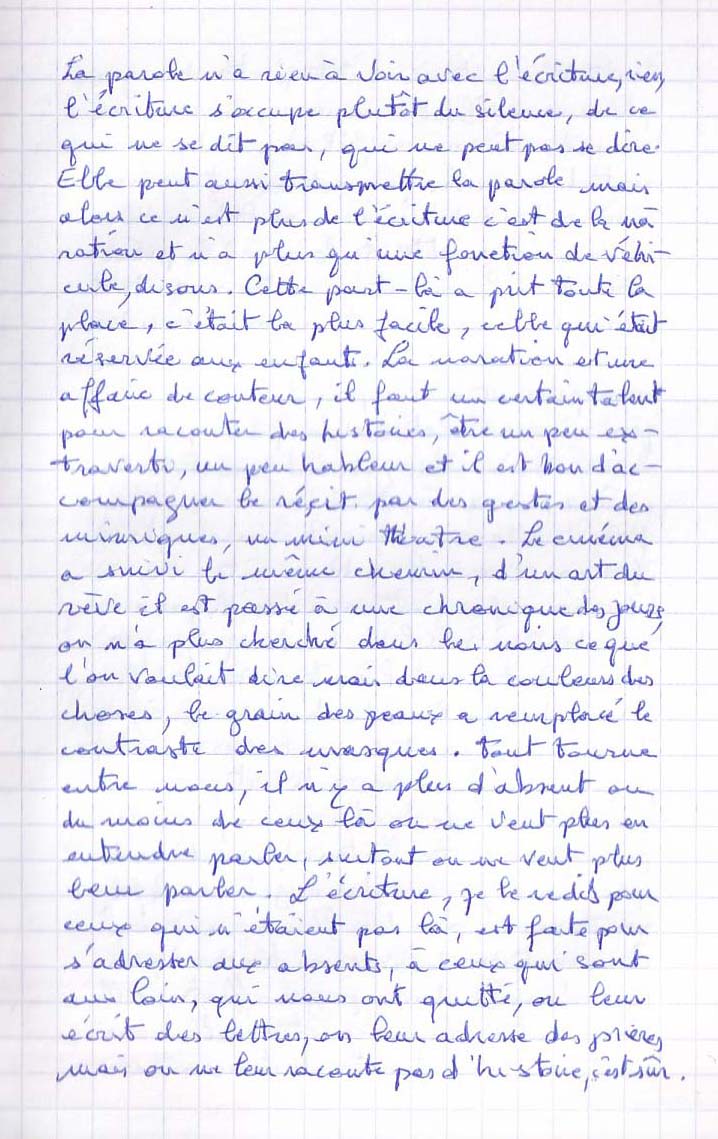 La parole n'a rien à voir avec l'écriture, rien,
l'écriture s'occupe plutôt du silence, de ce
qui ne se dit pas, qui ne peut pas se dire.
Elle peut aussi transmettre la parole mais
alors ce n'est plus de l'écriture c'est de la na
ration et n'a plus qu'une fonction de véhi-
cule, disons. Cette part-là a prit toute la
place, c'était la plus facile, celle qui était
réservée aux enfants. La naration est une
affaire de conteur, il faut un certain talent
pour raconter des histoires, être un peu ex-
traverti, un peu hableur et il est bon d'ac-
compagner le récit par des gestes et des
mimiques, un mini théatre. Le cinéma
a suivi le même chemin, d'un art du
rêve il est passé à une chronique des jours,
on n'a plus cherché dans les noirs ce que
l'on voulait dire mais dans la couleurs des
choses, le grain des peaux a remplacé le
contraste des masques. Tout tourne
entre nous, il n'y a plus d'absent ou
du moins de ceux là on ne veut plus en
entendre parler, surtout on ne veut plus
leur parler. L'écriture, je le redis pour
ceux qui n'étaient pas là, est faite pour
s'adresser aux absents, à ceux qui sont
au loin, qui nous ont quitté, on leur
écrit des lettres, on leur adresse des prières
mais on ne leur raconte pas d'histoire, c'est sûr.